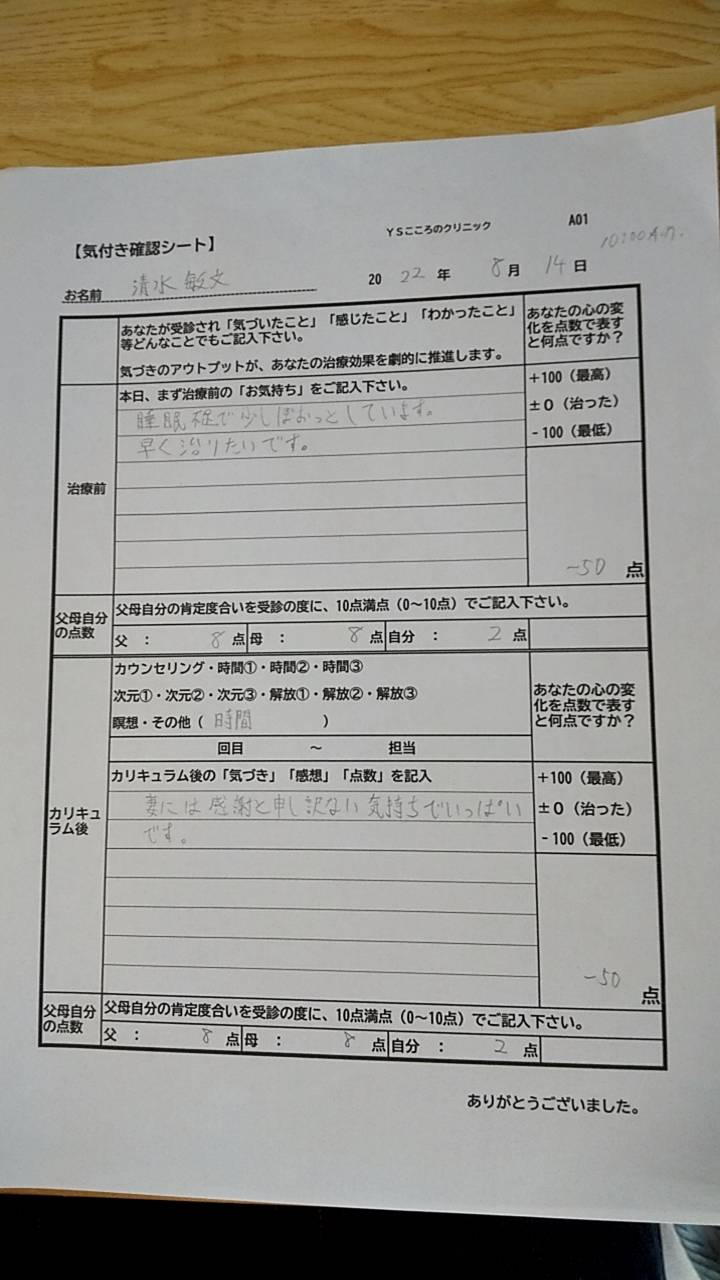 YSこころのクリニック
A01
【気付き確認シート】
10:00A.M.
お名前 清水敏文
2022年 8月 14日
あなたが受診され「気づいたこと」「感じたこと」「わかったこと」
等どんなことでもご記入下さい。
気づきのアウトプットが、あなたの治療効果を劇的に推進します。
あなたの心の変
化を点数で表す
と何点ですか?
治療前
本日、まず治療前の「お気持ち」をご記入下さい。
睡眠不足で少しぼおっとしています。
早く治りたいです。
+100(最高)
±0(治った)
-100(最低)
-50 点
父母自分
の点数
父母自分の肯定度合いを受診の度に、10点満点(0~10点)でご記入下さい。
父 : 8 点 母 : 8 点 自分 : 2 点
カウンセリング・時間①・時間②・時間③
次元①・次元②・次元③・解放①・解放②・解放③
瞑想・その他( 時間 )
回目 ~ 担当
あなたの心の変
化を点数で表す
と何点ですか?
カリキュ
ラム後
カリキュラム後の「気づき」「感想」「点数」を記入
妻には感謝と申し訳ない気持ちでいっぱい
です。
+100(最高)
±0(治った)
-100(最低)
-50 点
父母自分
の点数
父母自分の肯定度合いを受診の度に、10点満点(0~10点)でご記入下さい。
父 : 8 点 母 : 8 点 自分 : 2 点
ありがとうございました。